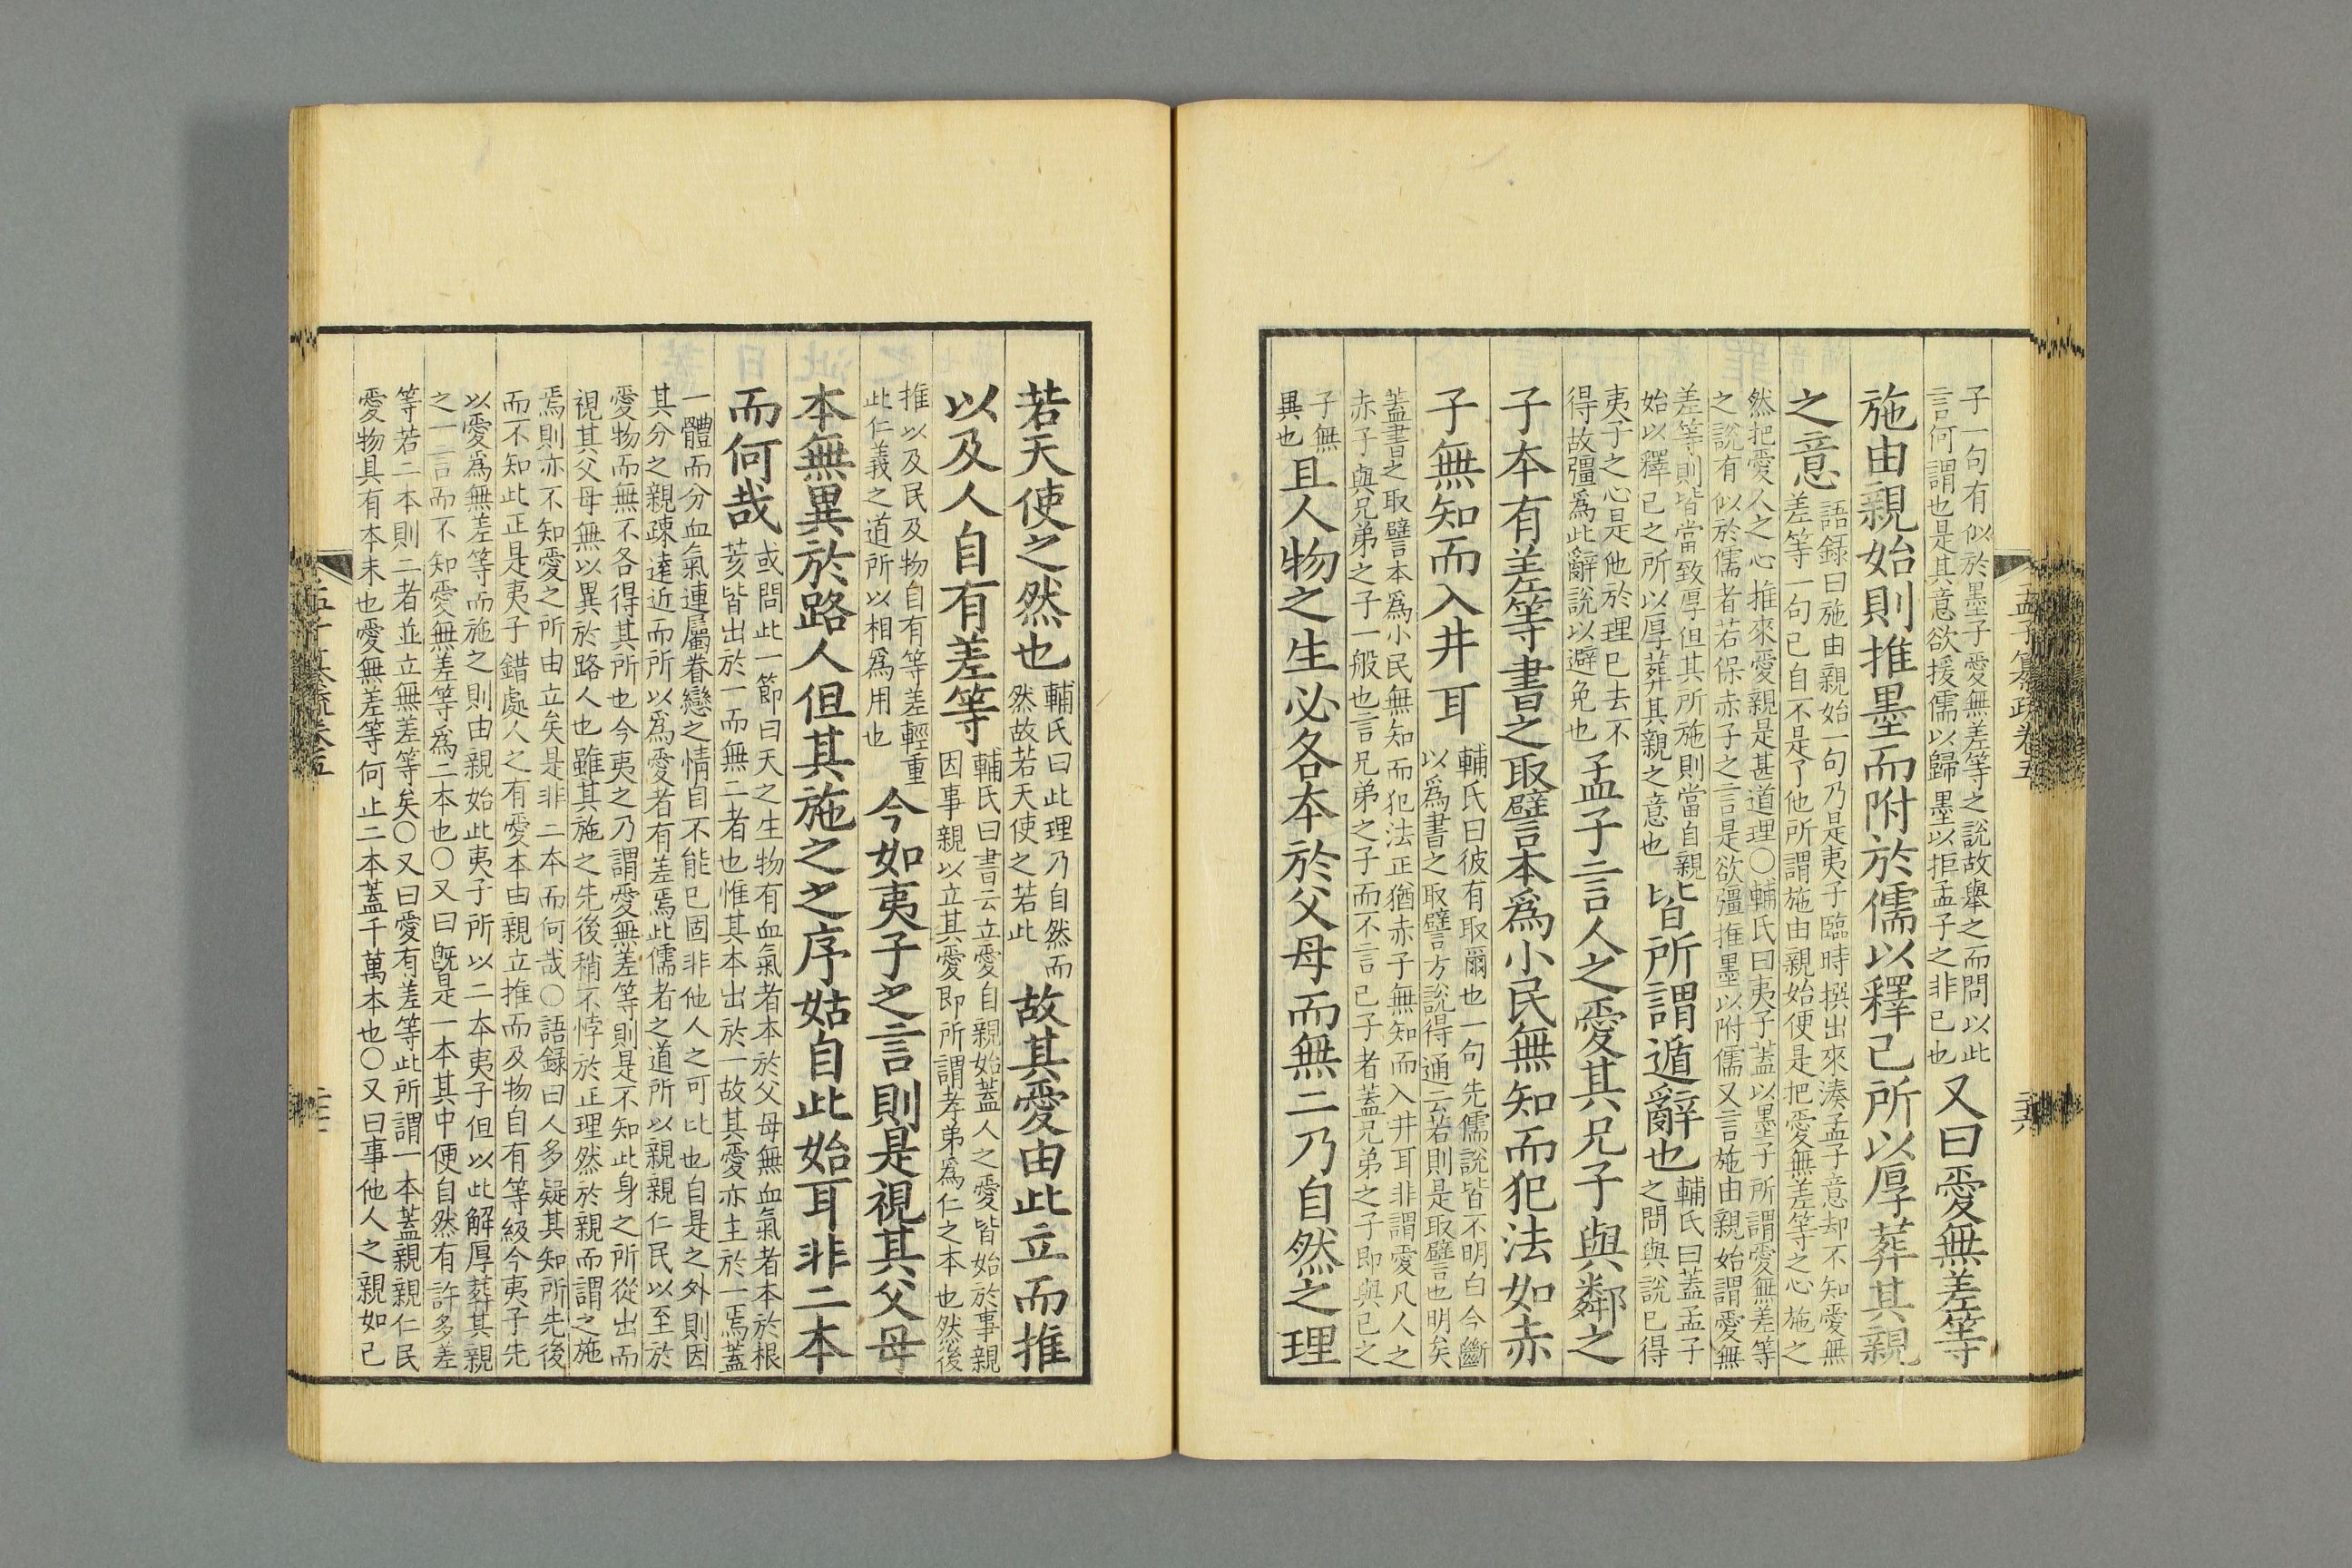 子一句有似於墨子愛無差等之說故舉之而問以此
言何謂也是其意欲援儒以歸墨以拒孟子之非己也
又曰愛無差等
施由親始則推墨而附於儒以釋己所以厚葬其親
之意
語錄曰施由親始一句乃是夷子臨時撰出來湊孟子意却不知愛無
差等一句已自不是了他所謂施由親始便是把愛無差等之心施之
然把愛人之心推來愛親是甚道理○輔氏曰夷子蓋以墨子所謂愛無差等
之說有似於儒者若保赤子之言是欲彊推墨以附儒又言施由親始謂愛無
差等則皆當致厚但其所施則當自親
始以釋已之所以厚葬其親之意也
皆所謂遁辭也
輔氏曰蓋孟子
之問與說已得
夷子之心是他於理已去不
得故彊爲此辭說以避免也
孟子言人之愛其兄子與鄰之
子本有差等書之取譬本爲小民無知而犯法如赤
子無知而入井耳
輔氏曰彼有取爾也一句先儒說皆不明白今斷
以爲書之取譬方說得通云若則是取譬也明矣
蓋書之取譬本爲小民無知而犯法正猶赤子無知而入井耳非謂愛凡人之
赤子與兄弟之子一般也言兄弟之子而不言已子者蓋兄弟之子即與已之
子無
異也
且人物之生必各本於父母而無二乃自然之理
孟子纂疏卷五
若天使之然也
輔氏曰此理乃自然而
然故若天使之若此
故其愛由此立而推
以及人自有差等
輔氏曰書云立愛自親始蓋人之愛皆始於事親
因事親以立其愛即所謂孝弟爲仁之本也然後
推以及民及物自有等差輕重
此仁義之道所以相爲用也
今如夷子之言則是視其父母
本無異於路人但其施之之序姑自此始耳非二本
而何哉
或問此一節曰天之生物有血氣者本於父母無血氣者本於根
荄皆出於一而無二者也惟其本出於一故其愛亦主於一焉蓋
一體而分血氣連屬眷戀之情自不能已固非他人之可比也自是之外則因
其分之親疎遠近而所以爲愛者有差焉此儒者之道所以親親仁民以至於
愛物而無不各得其所也今夷之乃謂愛無差等則是不知此身之所從出而
視其父母無以異於路人也雖其施之先後稍不悖於正理然於親而謂之施
焉則亦不知愛之所由立矣是非二本而何哉○語錄曰人多疑其知所先後
而不知此正是夷子錯處人之有愛本由親立推而及物自有等級今夷子先
以愛爲無差等而施之則由親始此夷子所以二本夷子但以此解厚葬其親
之一言而不知愛無差等爲二本也○又曰旣是一本其中便自然有許多差
等若二本則二者並立無差等矣○又曰愛有差等此所謂一本蓋親親仁民
愛物具有本末也愛無差等何止二本蓋千萬本也○又曰事他人之親如己